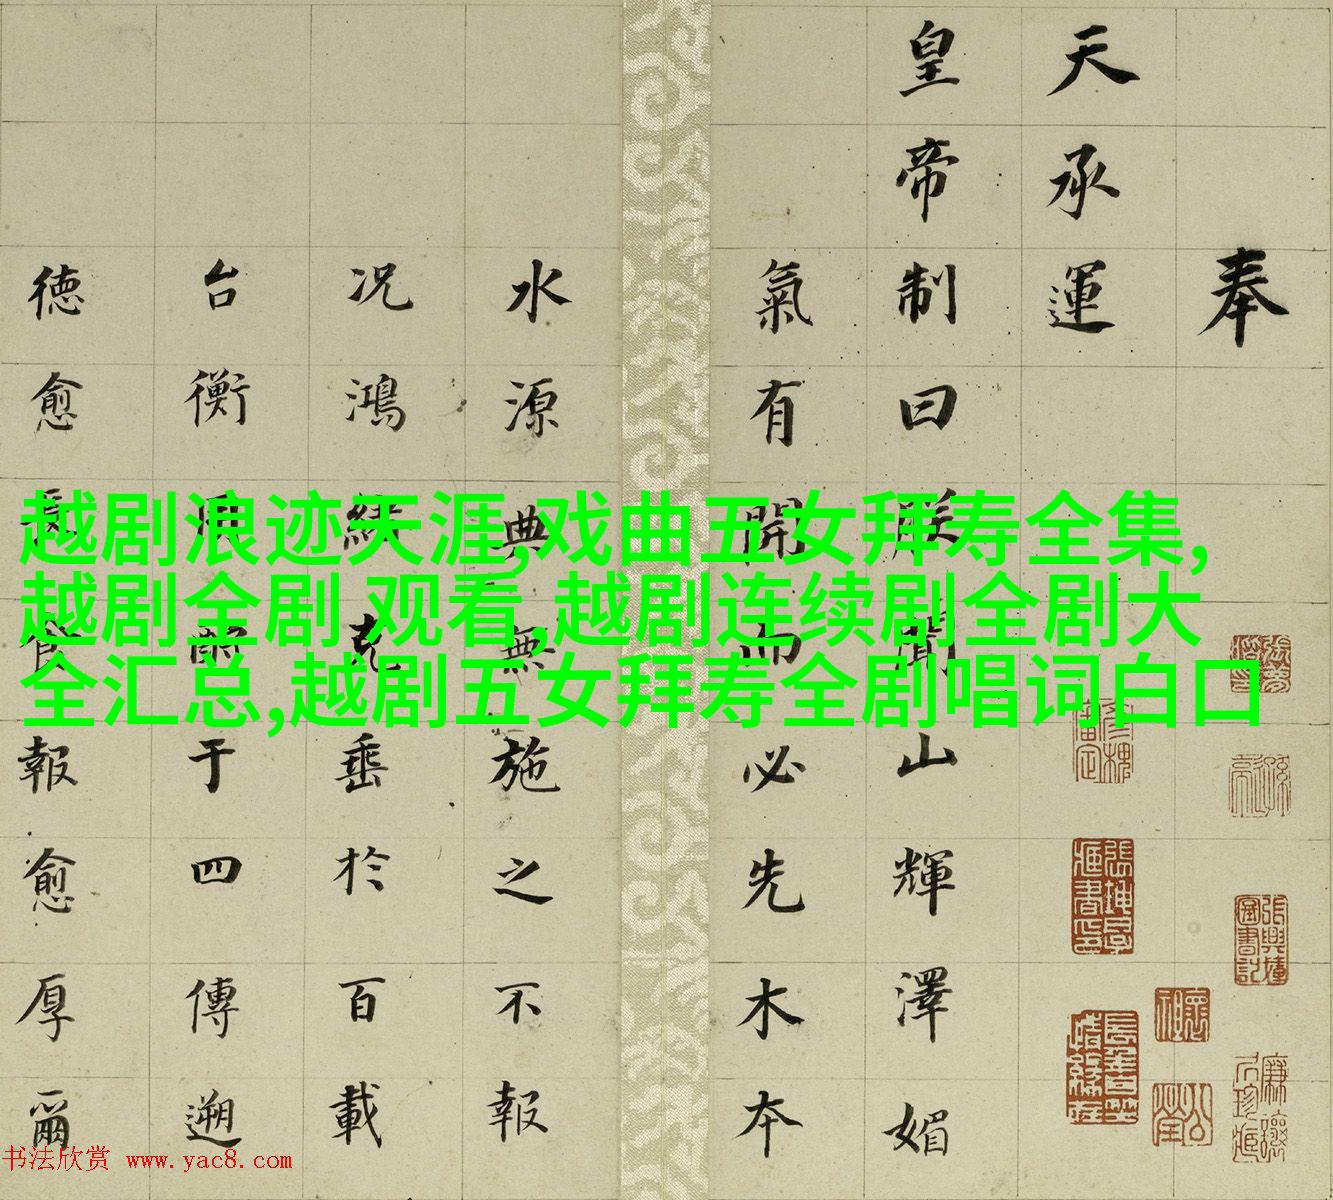 奉
天承運
皇帝制曰朕聞山輝澤媚
氣有開而必先木本
水源典無施之不報
况鴻緒克垂於百載
台衡于四傳遡
德愈長食報愈厚爾
越剧浪迹天涯,戏曲五女拜寿全集,
越剧全剧 观看,越剧连续剧全剧大
全汇总,越剧五女拜寿全剧唱词白口
书法欣赏 www.yac8.com